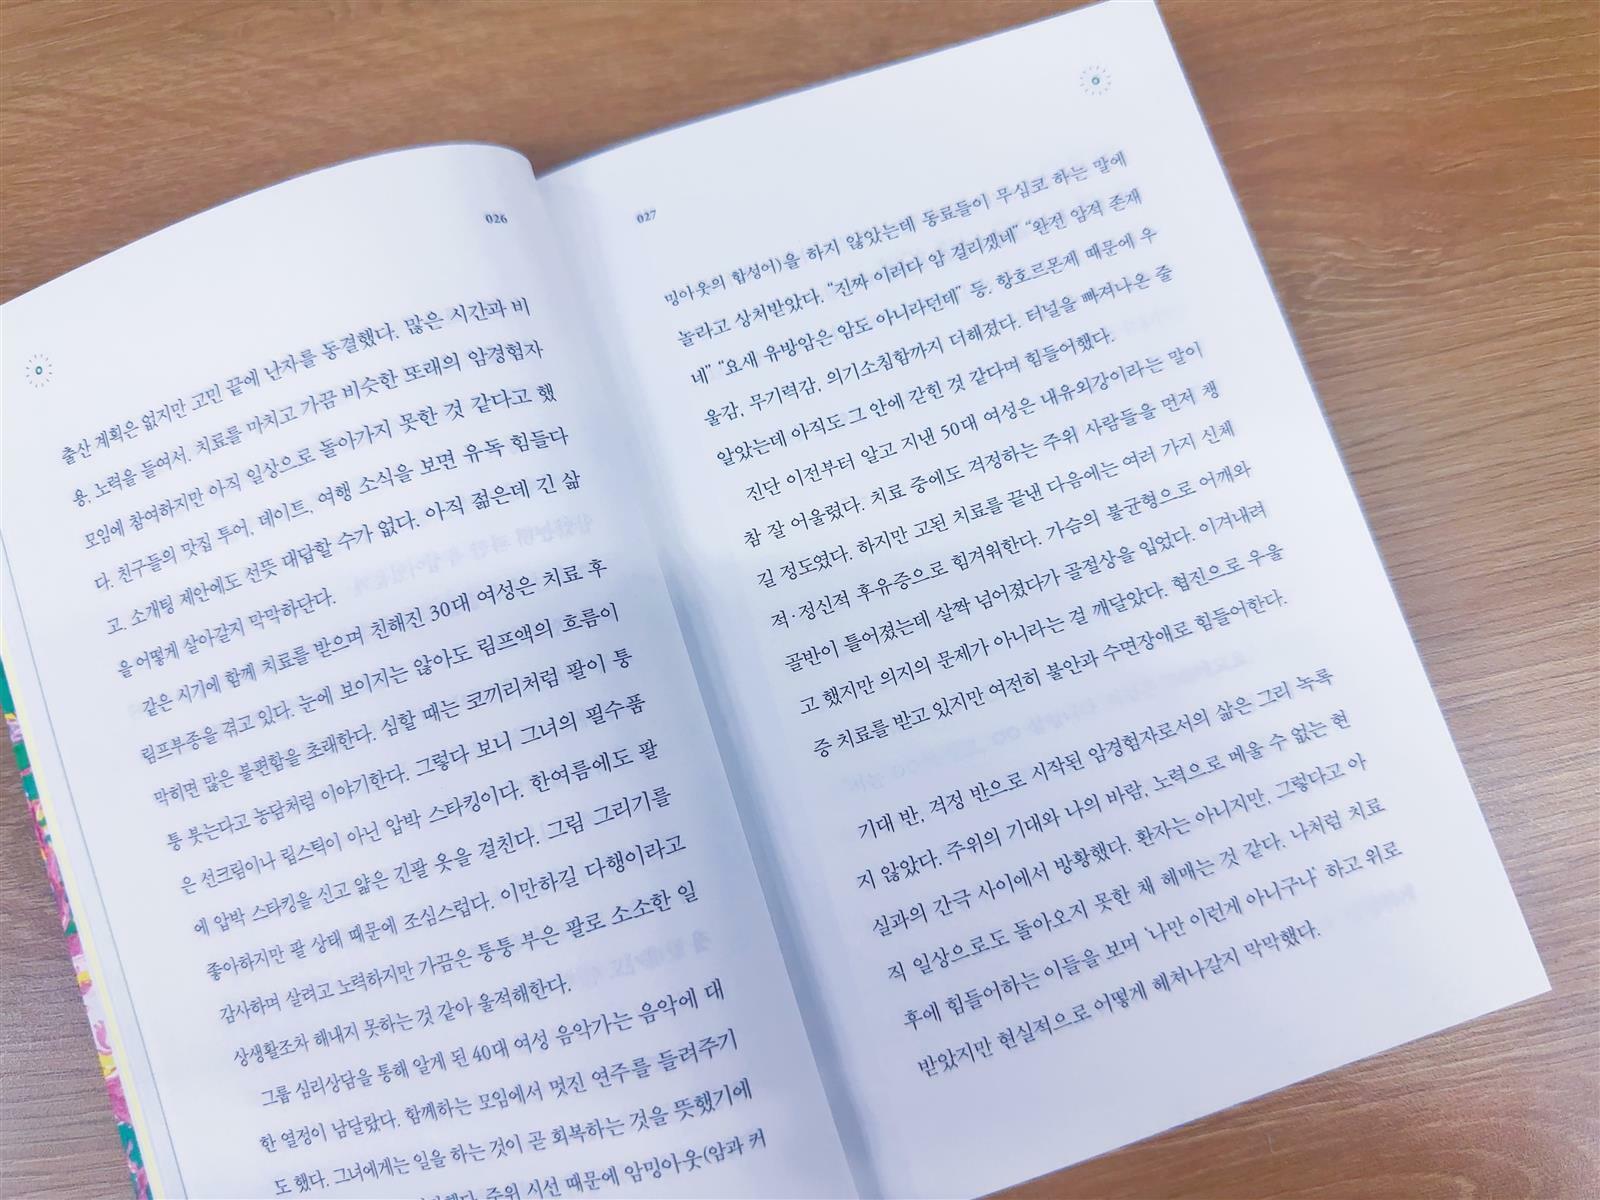 026
출산 계획은 없지만 고민 끝에 난자를 동결했다. 많은 시간과 비
용, 노력을 들여서. 치료를 마치고 가끔 비슷한 또래의 암경험자
모임에 참여하지만 아직 일상으로 돌아가지 못한 것 같다고 했
다. 친구들의 맛집 투어, 데이트, 여행 소식을 보면 유독 힘들다
고. 소개팅 제안에도 선뜻 대답할 수가 없다. 아직 젊은데 긴 삶
을 어떻게 살아갈지 막막하단다.
같은 시기에 함께 치료를 받으며 친해진 30대 여성은 치료 후
림프부종을 겪고 있다. 눈에 보이지는 않아도 림프액의 흐름이
막히면 많은 불편함을 초래한다. 심할 때는 코끼리처럼 팔이 퉁
퉁 붓는다고 농담처럼 이야기한다. 그렇다 보니 그녀의 필수품
은 선크림이나 립스틱이 아닌 압박 스타킹이다. 한여름에도 팔
에 압박 스타킹을 신고 얇은 긴팔 옷을 걸친다. 그림 그리기를
좋아하지만 팔 상태 때문에 조심스럽다. 이만하길 다행이라고
감사하며 살려고 노력하지만 가끔은 퉁퉁 부은 팔로 소소한 일
상생활조차 해내지 못하는 것 같아 울적해한다.
그룹 심리상담을 통해 알게 된 40대 여성 음악가는 음악에 대
한 열정이 남달랐다. 함께하는 모임에서 멋진 연주를 들려주기
도 했다. 그녀에게는 일을 하는 것이 곧 회복하는 것을 뜻했기에
주위 시선 때문에 암밍아웃(암과 커
027
밍아웃의 합성어)을 하지 않았는데 동료들이 무심코 하는 말에
놀라고 상처받았다. “진짜 이러다 암 걸리겠네” “완전 암적 존재
네” “요새 유방암은 암도 아니라던데” 등. 항호르몬제 때문에 우
울감, 무기력감, 의기소침함까지 더해졌다. 터널을 빠져나온 줄
알았는데 아직도 그 안에 갇힌 것 같다며 힘들어했다.
진단 이전부터 알고 지낸 50대 여성은 내유외강이라는 말이
참 잘 어울렸다. 치료 중에도 걱정하는 주위 사람들을 먼저 챙
길 정도였다. 하지만 고된 치료를 끝낸 다음에는 여러 가지 신체
적·정신적 후유증으로 힘겨워한다. 가슴의 불균형으로 어깨와
골반이 틀어졌는데 살짝 넘어졌다가 골절상을 입었다. 이겨내려
고 했지만 의지의 문제가 아니라는 걸 깨달았다. 협진으로 우울
증 치료를 받고 있지만 여전히 불안과 수면장애로 힘들어한다.
기대 반, 걱정 반으로 시작된 암경험자로서의 삶은 그리 녹록
지 않았다. 주위의 기대와 나의 바람, 노력으로 메울 수 없는 현
실과의 간극 사이에서 방황했다. 환자는 아니지만, 그렇다고 아
직 일상으로도 돌아오지 못한 채 헤매는 것 같다. 나처럼 치료
후에 힘들어하는 이들을 보며 ‘나만 이런게 아니구나’ 하고 위로
받았지만 현실적으로 어떻게 헤쳐나갈지 막막했다.